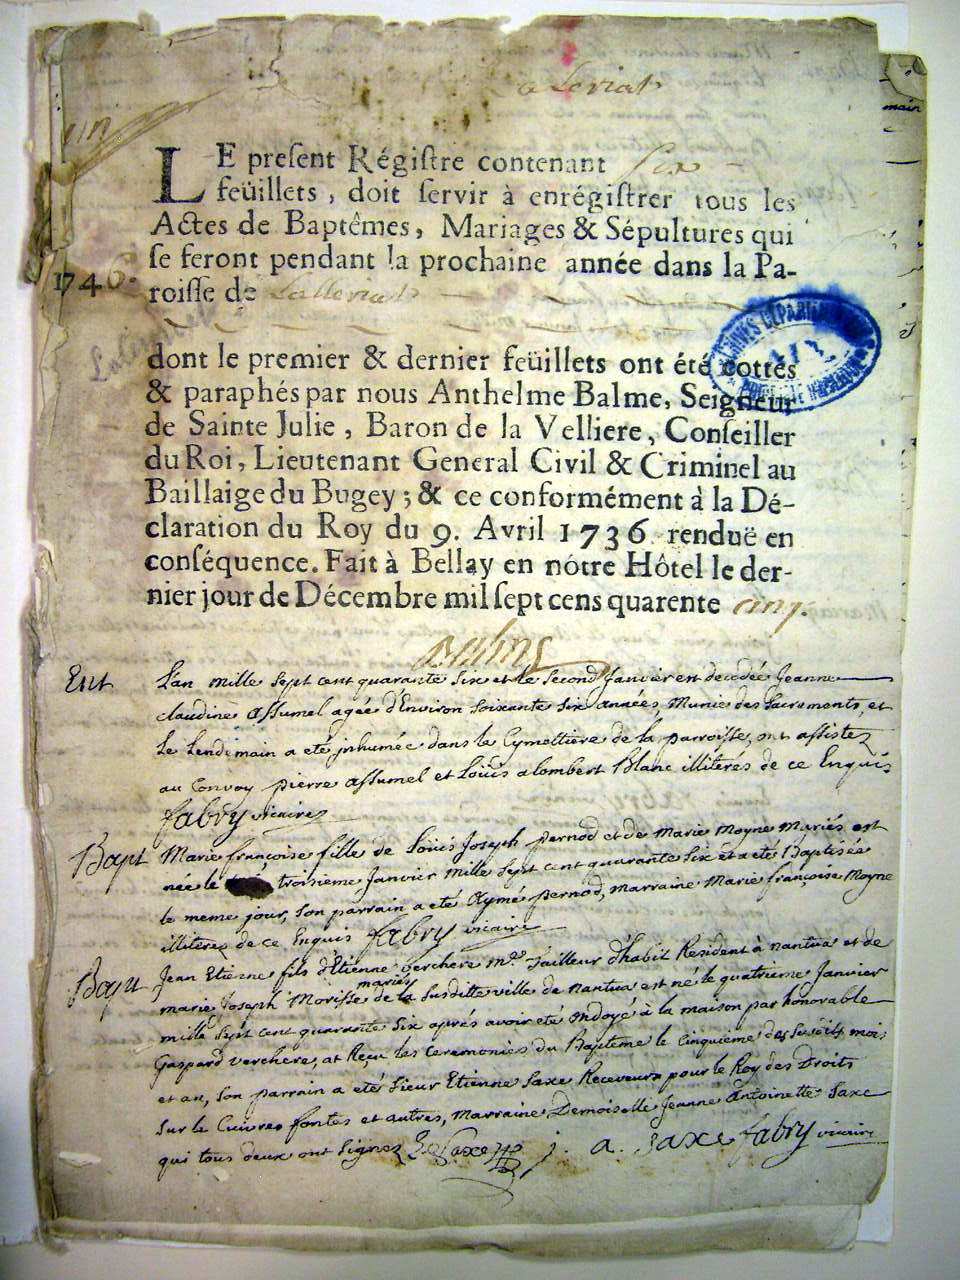 a Leriat
LE present Régistre contenant six
feüillets, doit servir à enrégistrer tous les
Actes de Baptêmes, Mariages & Sépultures qui
se feront pendant la prochaine année dans la Pa-
1746.
roisse de Lalleriat
dont le premier & dernier feüillets ont été cottés
& paraphés par nous Anthelme Balme, Seigneur
de Sainte Julie, Baron de la Velliere, Conseiller
du Roi, Lieutenant General Civil & Criminel au
Baillaige du Bugey; & ce conformément à la Dé-
claration du Roy du 9. Avril 1736. renduë en
conséquence. Fait à Bellay en nôtre Hôtel le der-
nier jour de Décembre mil sept cens quarente cinq.
Balme
Ent L'an mille sept cent quarante six et le second Janvier est decedée Jeanne
claudine assumel agée d'Environ soixante six années, Munie des Sacrements, et
le Lendimain a eté inhumée dans le Cymettiere de la parroisse, ont assistez
au Convoy pierre assumel et Loüis alombert Blanc illiteres de ce Enquis
fabry vicaire
Bapt Marie françoise fille de Loüis Joseph pernod et de Marie Moyne Mariés est
née le troisieme Janvier Mille Sept cent quarante six et a eté Baptisée
le meme jour, son parrain a eté Aymé pernod, marraine Marie françoise Moyne
illiterez de ce Enquis fabry vicaire
Bapt Jean Etienne fils d'Etienne Verchere Mre Tailleur d'habit Resident à nantua et de
marie Joseph Morisse mariés de la Susditte ville de nantua est né le quatrieme Janvier
mille sept cent quarante six aprés avoir eté ondoyé à la maison par honorable
Gaspard Verchere, at Reçu les ceremonies du Baptême le Cinquieme des susdits mois
et an, son parrain a eté Sieur Etienne Saxe Receveur pour le Roy des Droits
sur le Cuivre fontes et autres, Marraine Demoiselle Jeanne Antoinette Saxe
qui tous deux ont signez E Saxe j. a. saxe fabry vicaire